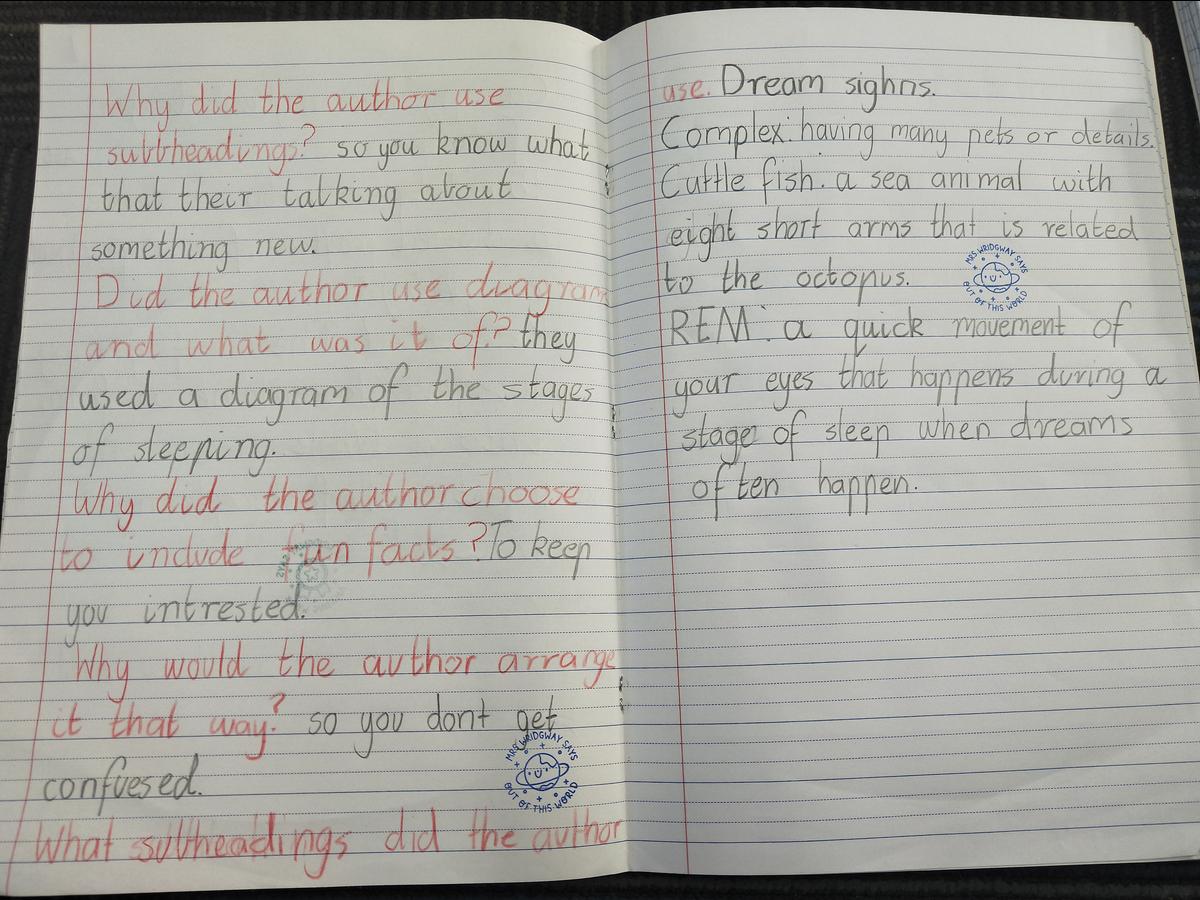 Why did the author use
subtheadings? so you know what
that their talking about
something new.
Did the author use diagram
and what was it of? they
used a diagram of the stages
of sleeping.
Why did the author choose
to include fun facts? To keep
you intrested.
Why would the author arrange
it that way? so you dont get
confuesed.
MRS WRIDGWAY SAYS
OUT OF THIS WORLD
What subheadings did the author
use. Dream sighns.
Complex: having many pets or details.
Cuttle fish. a sea animal with
eight short arms that is related
to the octopus.
MRS WRIDGWAY SAYS
OUT OF THIS WORLD
REM: a quick movement of
your eyes that happens during a
stage of sleep when dreams
often happen.